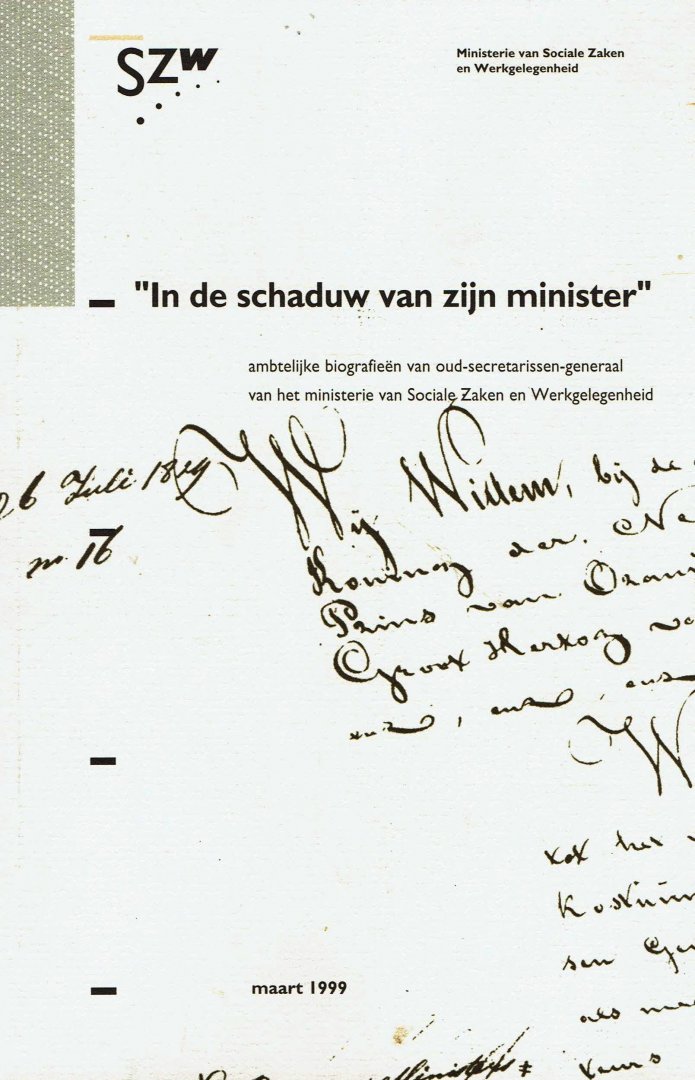 SZW
Ministerie van Sociale Zaken
en Werkgelegenheid
"In de schaduw van zijn minister"
ambtelijke biografieën van oud-secretarissen-generaal
van het ministerie van Sociale Zaken en Werkgelegenheid
26 Juli
no. 16
Wij Willem, bij de
Koning der Ne
Prins van Orani
Groot Hertog va
enz, enz, enz
W
tot het
Kostuum
sen Ge
als me
maart 1999